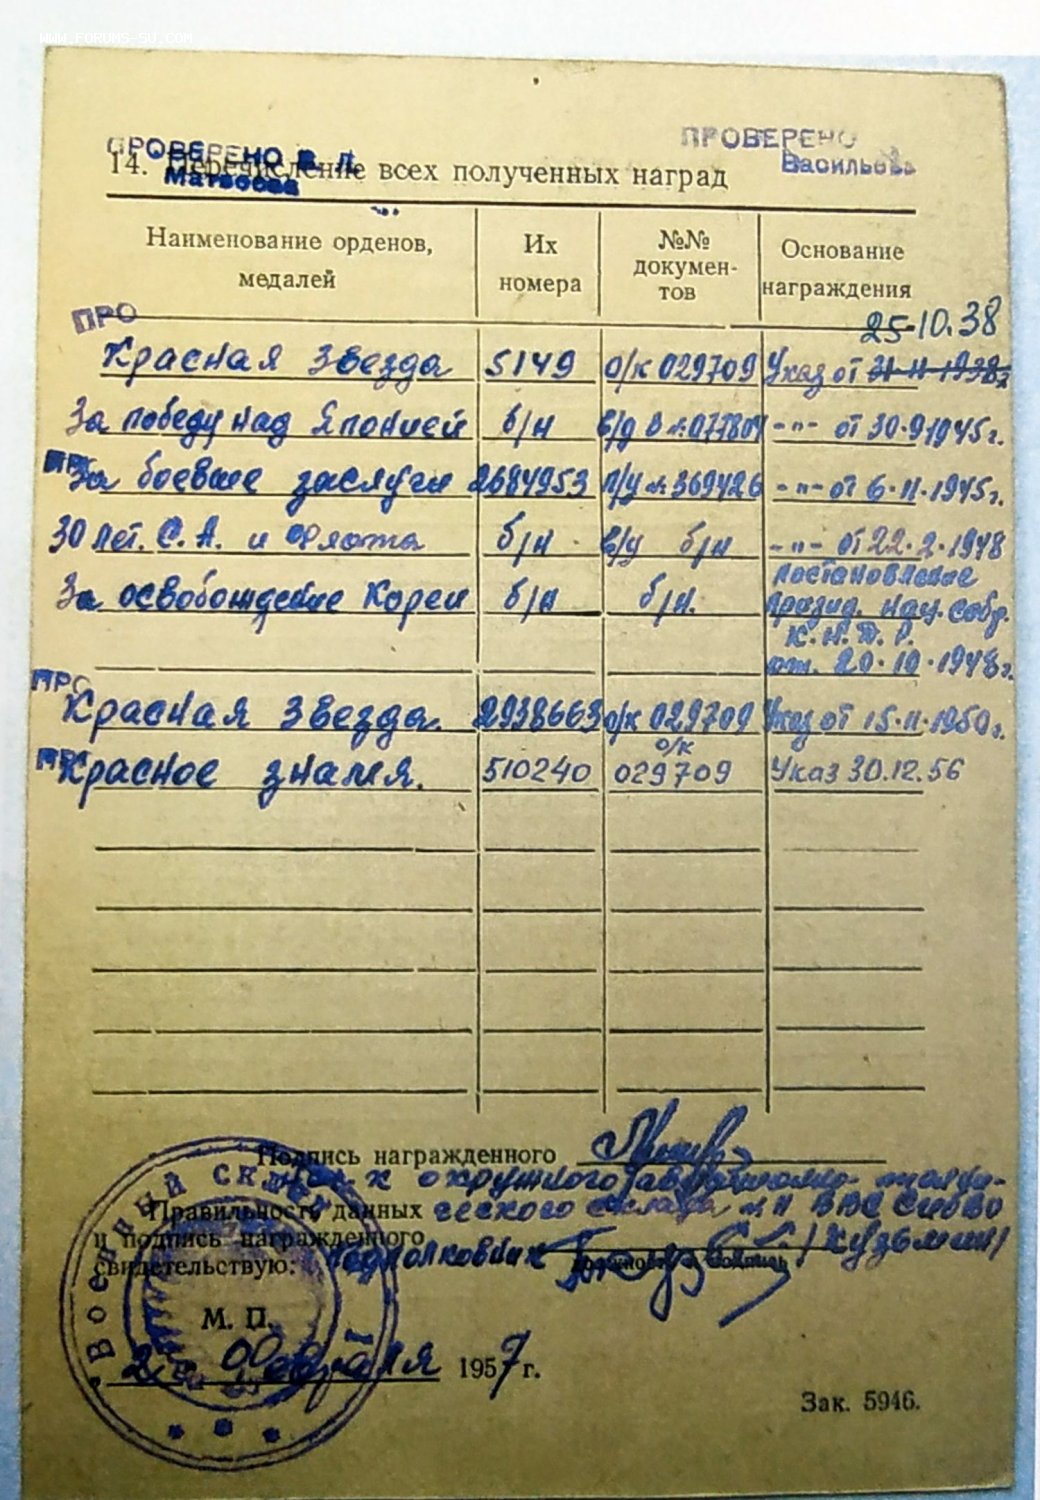 WWW.FORUMS-SU.COM
ПРОВЕРЕНО В Л
Матвоева
ПРОВЕРЕНО
Васильева
14. Перечисление всех полученных наград
Наименование орденов, медалей | Их номера | №№ докумен-тов | Основание награждения
ПРО
25-10.38
Красная Звезда 5149 о/к 029709 Указ от 31-11-1938г
За победу над Японией б/н в/д В № 077804 -"- от 30.9.1945г.
ПРО
За боевые заслуги 2684953 п/у № 369426 -"- от 6.11.1945г.
30 лет. С. А. и Флота б/н в/у б/н -"- от 22.2.1948
За освобождение Кореи б/н б/н. постановление
презид. нац. собр.
К. Н. Д. Р.
от. 20.10.1948г.
ПРО
Красная Звезда. 2938663 о/к 029709 Указ от 15.11.1950г.
ПРО
Красное знамя. 510240 о/к 029709 Указ 30.12.56
Подпись награжденного
Нач-к окружного техни-
Правильность данных ческого склада ВВС СибВО
и подпись награжденного
свидетельствую: подполковник /Кузьмин/
должность и подпись
ВОЕННЫЙ СКЛАД
М. П.
2 февраля 1957 г.
Зак. 5946.